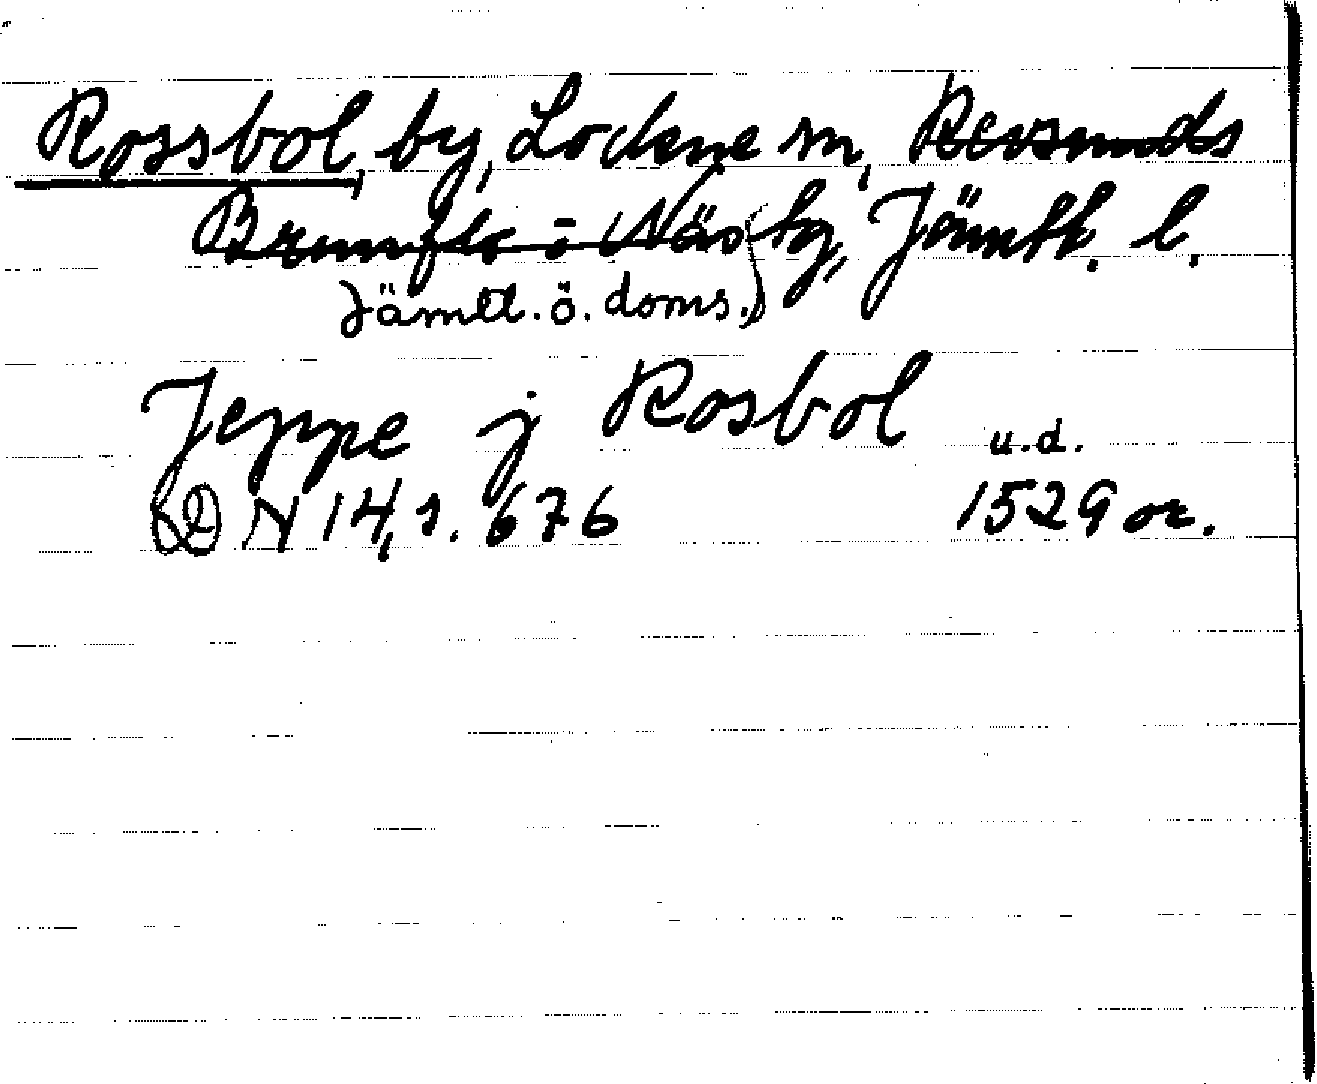 Rossbol, by, Lockne sn, Revsunds
Brunflo o Näs tg, Jämtl. l.
Jämtl. ö. doms.)
Jeppe j Rosbol u.d.
DN 14, s. 676 1529 or.